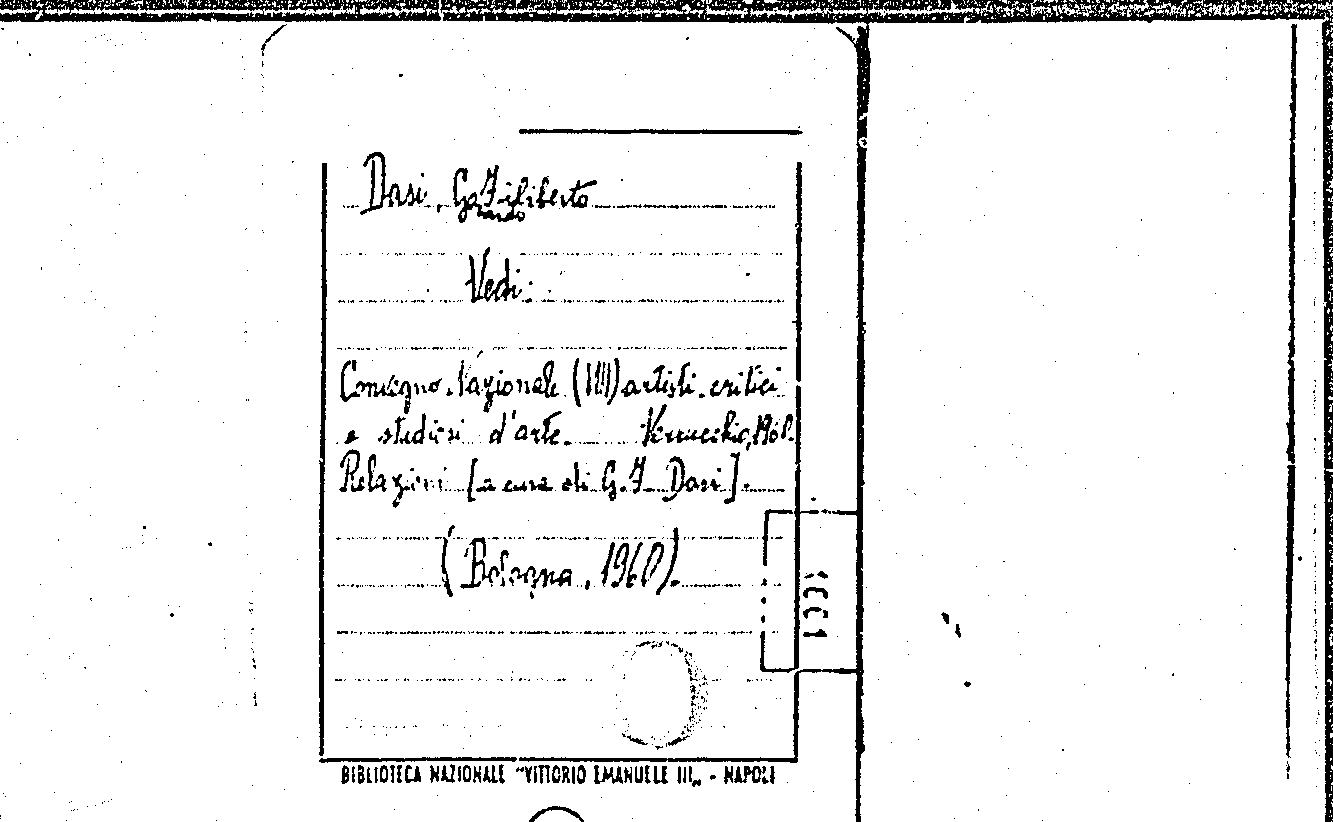 Dasi, Ge Filiberto
rardo
Vedi:
Convegno Nazionale (VIII) artisti, critici
e studiosi d'arte. Verucchio, 1960.
Relazioni [a cura di G. F. Dasi].
(Bologna, 1960).
BIBLIOTECA NAZIONALE "VITTORIO EMANUELE III„ - NAPOLI